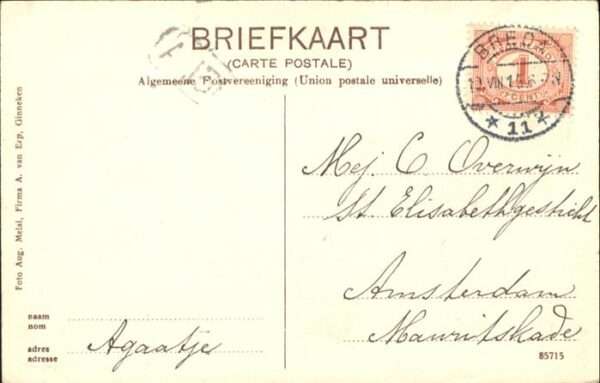 BRIEFKAART
(CARTE POSTALE)
Algemeene Postvereeniging (Union postale universelle)
BREDA
1
CENT
★ 11 ★
Foto Aug. Melai, Firma A. van Erp, Ginneken
Mej. C Overwijn
St. Elisabethgesticht
Amsterdam
Mauritskade
naam
nom
adres
adresse
Agaatje
85715